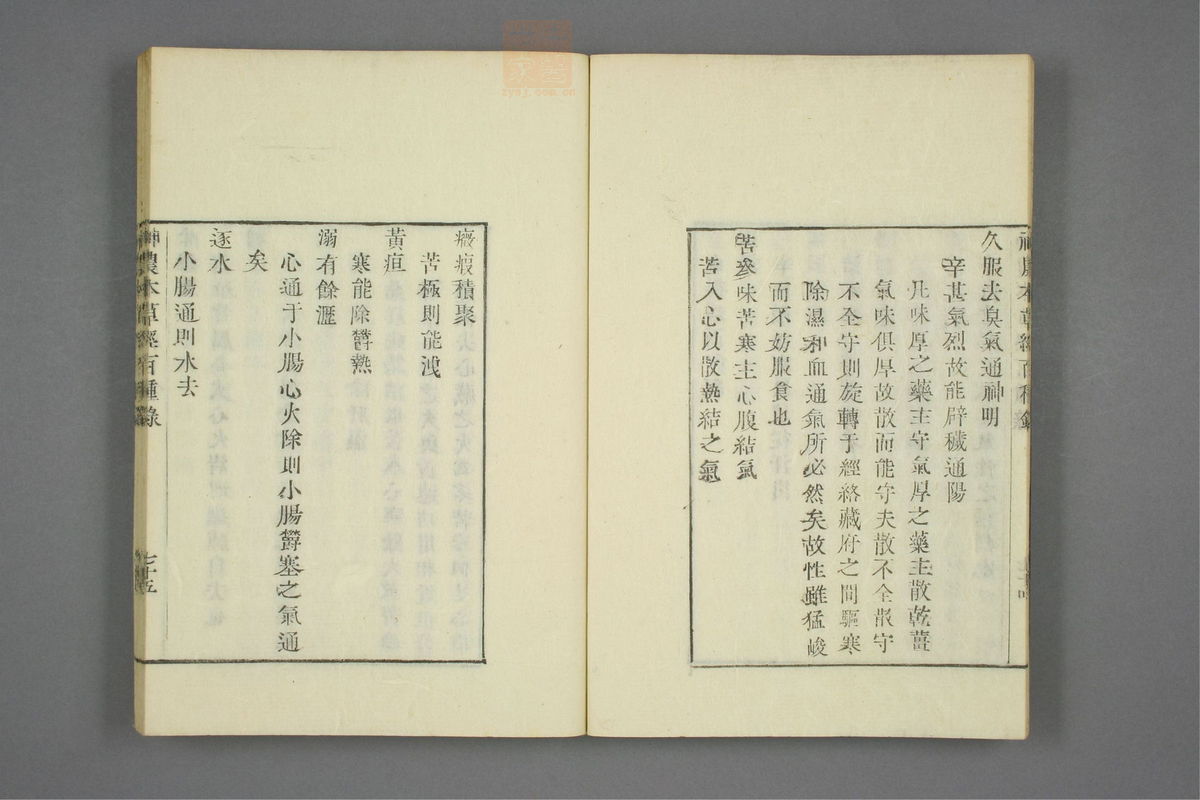 久服去臭氣通神明
辛甚氣烈故能辟穢通陽
凡味厚之藥主守氣厚之藥主散乾薑
氣味俱厚故散而能守夫散不全散守
不全守則旋轉于經絡藏府之間驅寒
除濕和血通氣所必然矣故性雖猛峻
而不妨服食也
苦參味苦寒主心腹結氣
苦入心以散熱結之氣
癥瘕積聚
苦極則能洩
黃疸
寒能除鬱熱
溺有餘瀝
心通于小腸心火除則小腸鬱塞之氣通
矣
逐水
小腸通則水去
神農本草經百種錄
七十五
zysj.com.cn